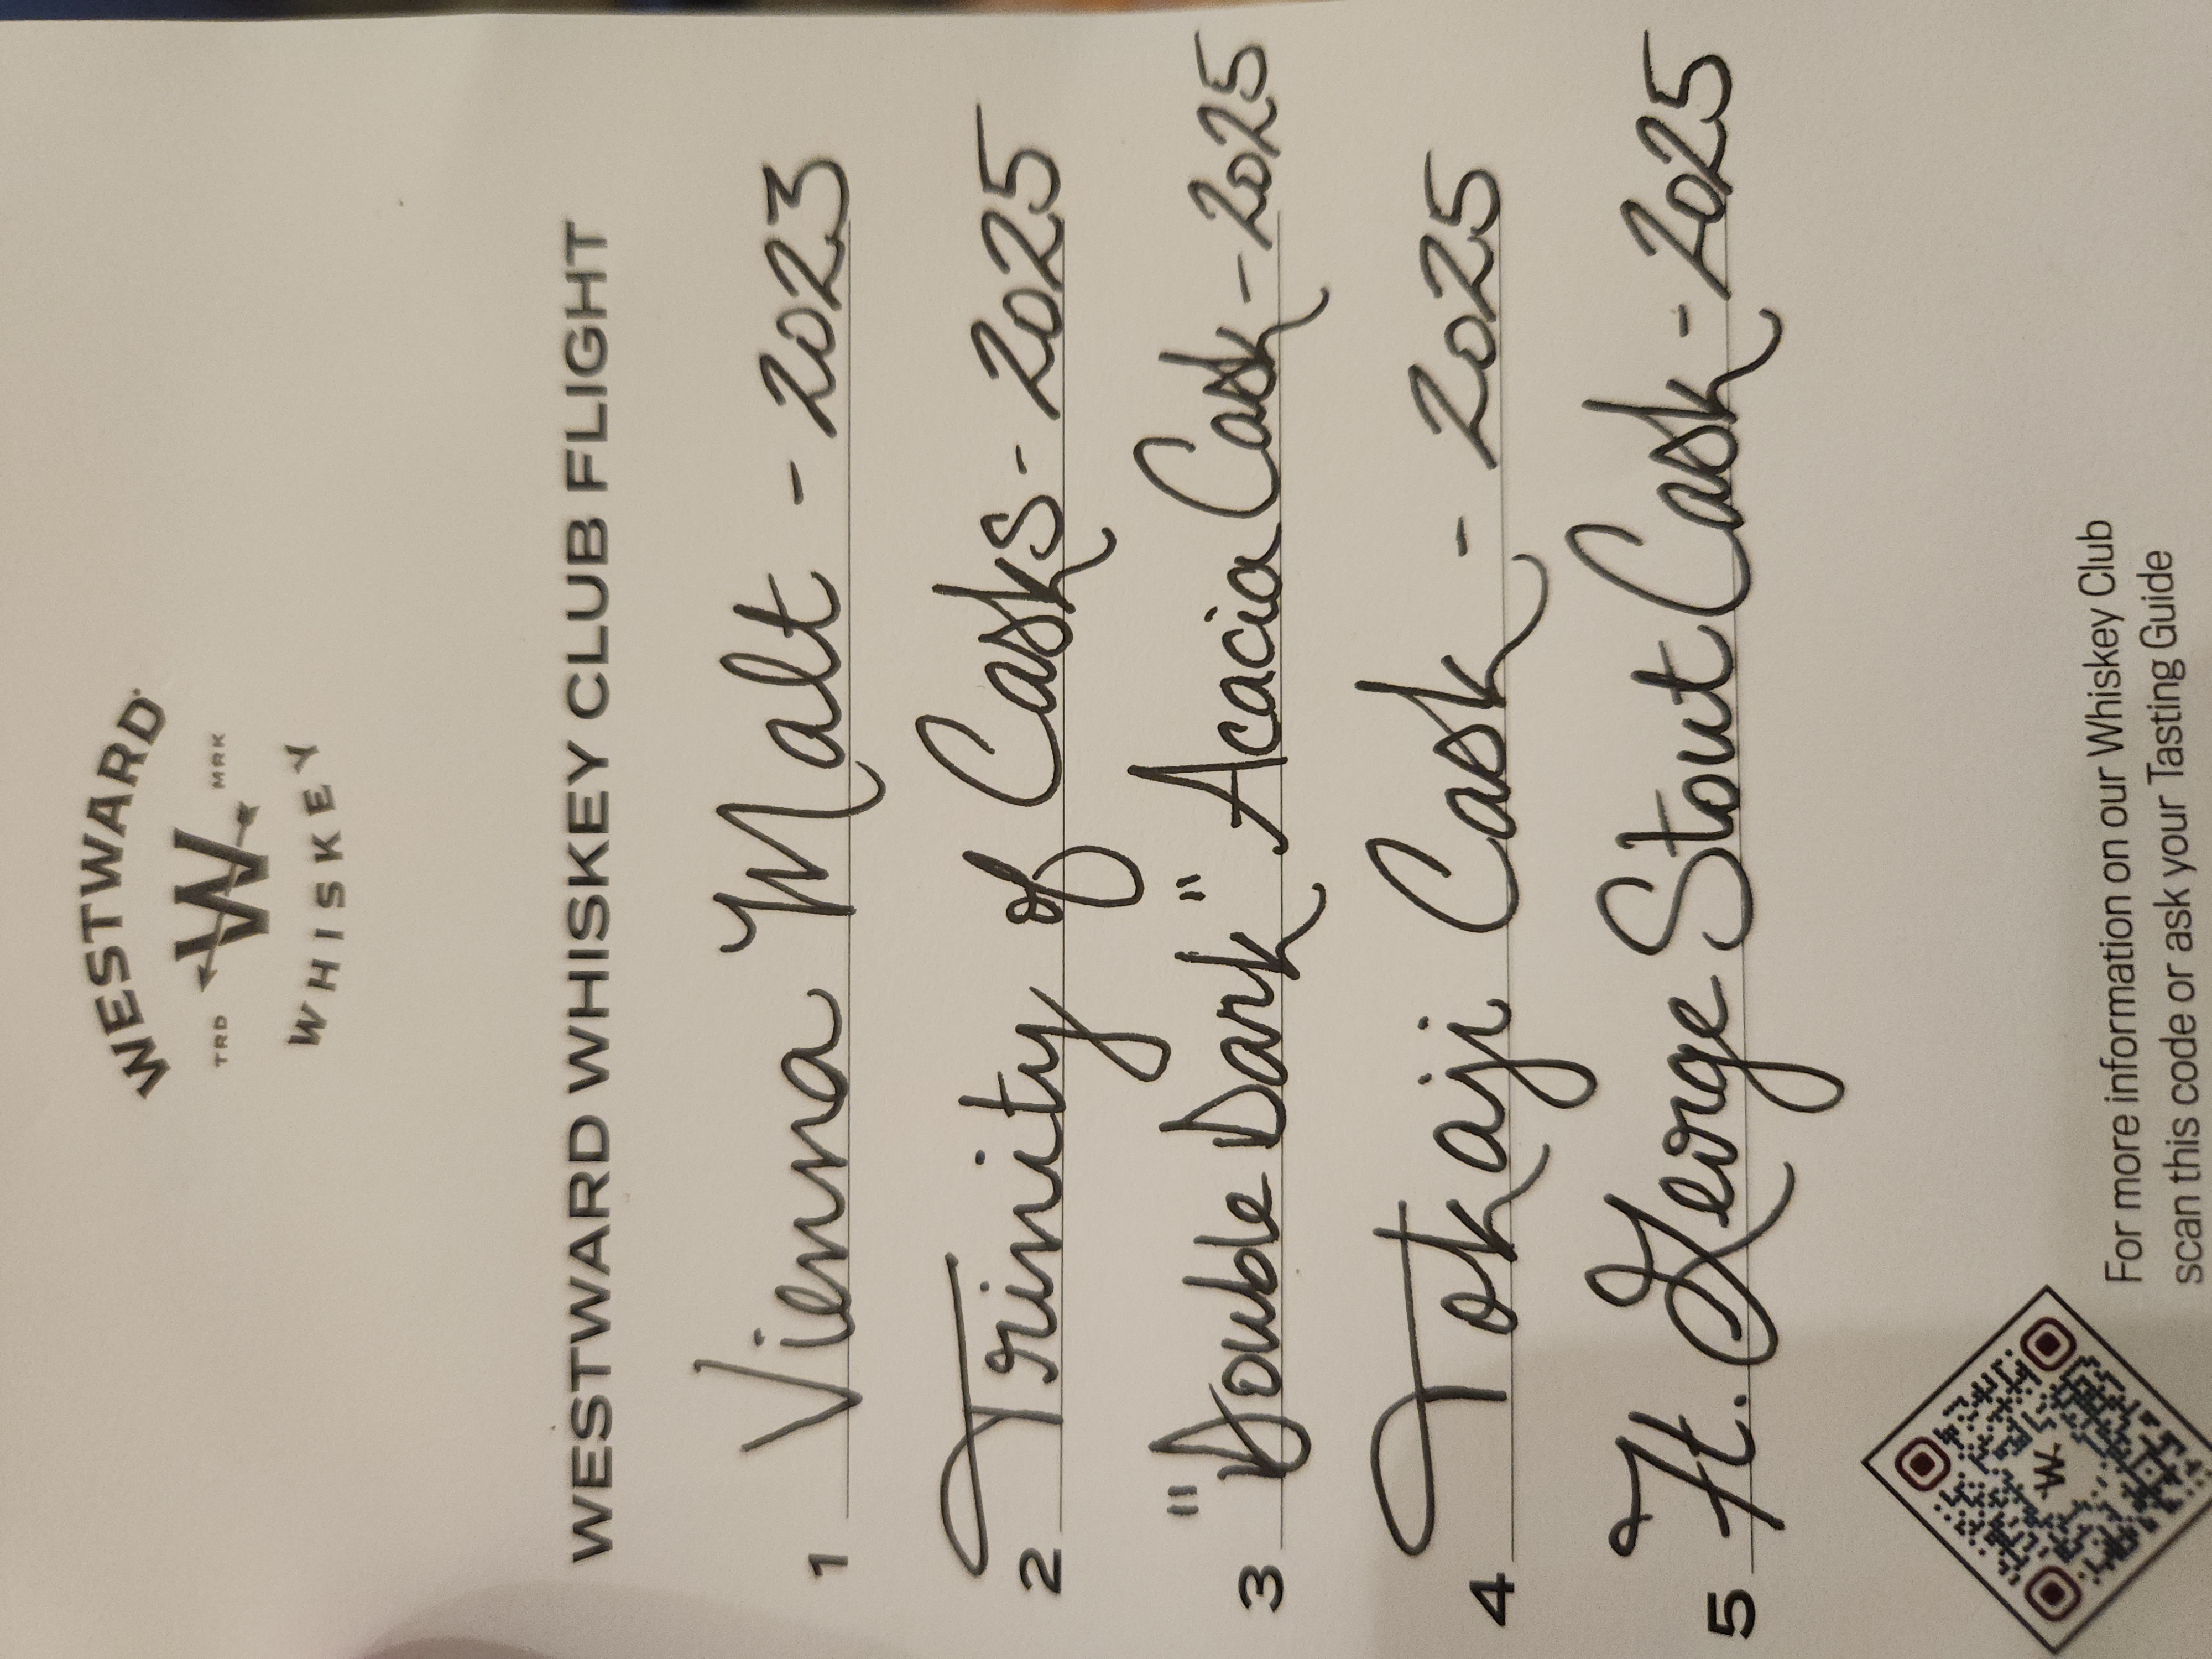 WESTWARD
TRD W MRK
WHISKEY
WESTWARD WHISKEY CLUB FLIGHT
1 Vienna Malt - 2023
2 Trinity of Casks - 2025
3 "Double Dark" Acacia Cask - 2025
4 Tokaji Cask - 2025
5 Ft. George Stout Cask - 2025
W
For more information on our Whiskey Club
scan this code or ask your Tasting Guide